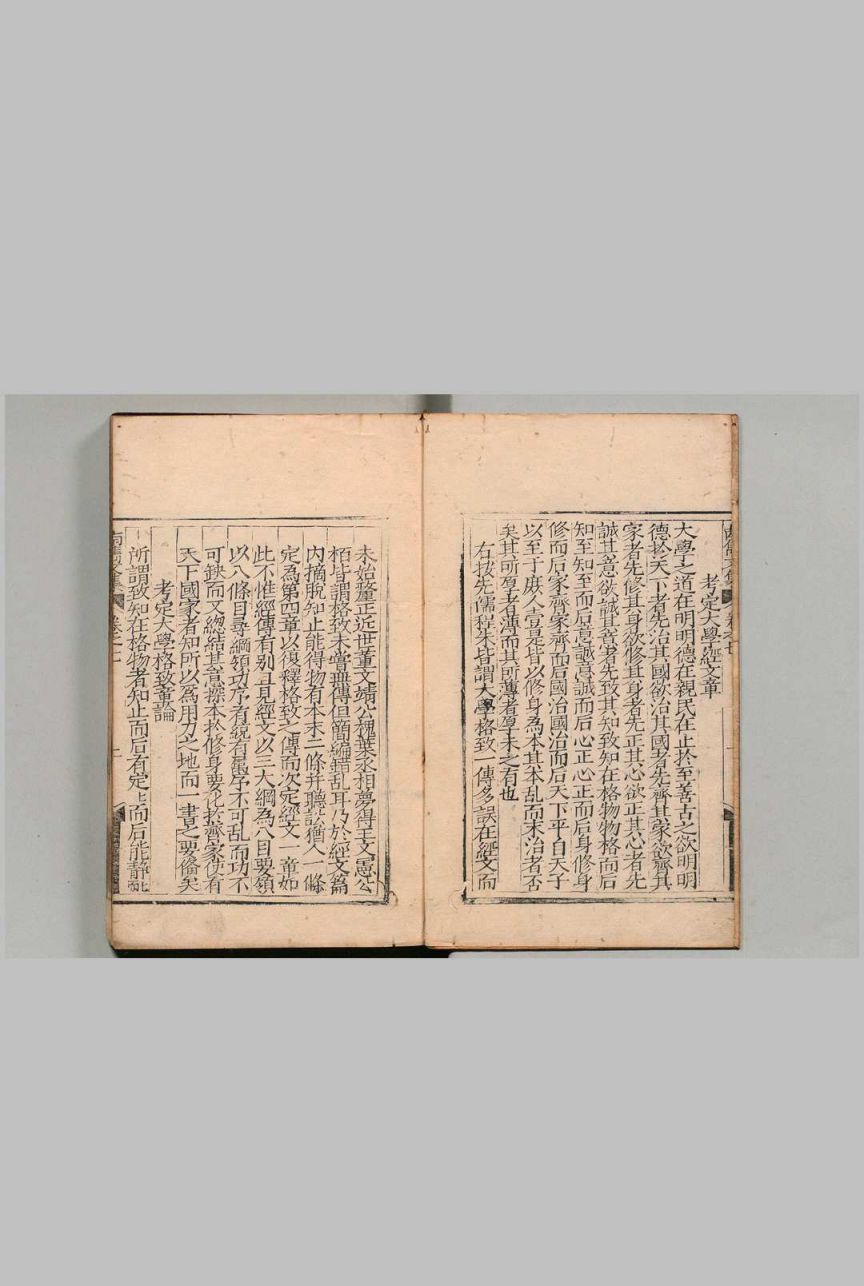 考定大學經文章
大學之道在明明德在親民在止扵至善古之欲明明
德扵天下者先治其國欲治其國者先齊其家欲齊其
家者先修其身欲修其身者先正其心欲正其心者先
誠其意欲誠其意者先致其知致知在格物物格而后
知至知至而后意誠意誠而后心正心正而后身修身
修而后家齊家齊而后國治國治而后天下平自天子
以至于庶人壹是皆以修身為本其本乱而末治者否
矣其所厚者薄而其所薄者厚未之有也
右按先儒程朱皆謂大學格致一傳多誤在經文而
未始釐正近世董文靖公槐葉丞相夢得王文憲公
栢皆謂格致未嘗無傳但簡編錯乱耳乃於經文篇
内摘脫知止能得物有本末二條并聽訟猶人一條
定為第四章以復釋格致之傳而次定經文一章如
此不惟經傳有别且見經文以三大綱為八目要領
以八條目尋綱領功序有統有屬序不可乱而功不
可缺而又總結其意㨿本扵修身要化扵齊家使有
天下國家者知所以為用力之地而一書之要俻矣
考定大學格致章論
所謂致知在格物者知止而后有定定而后能静静
卷之七